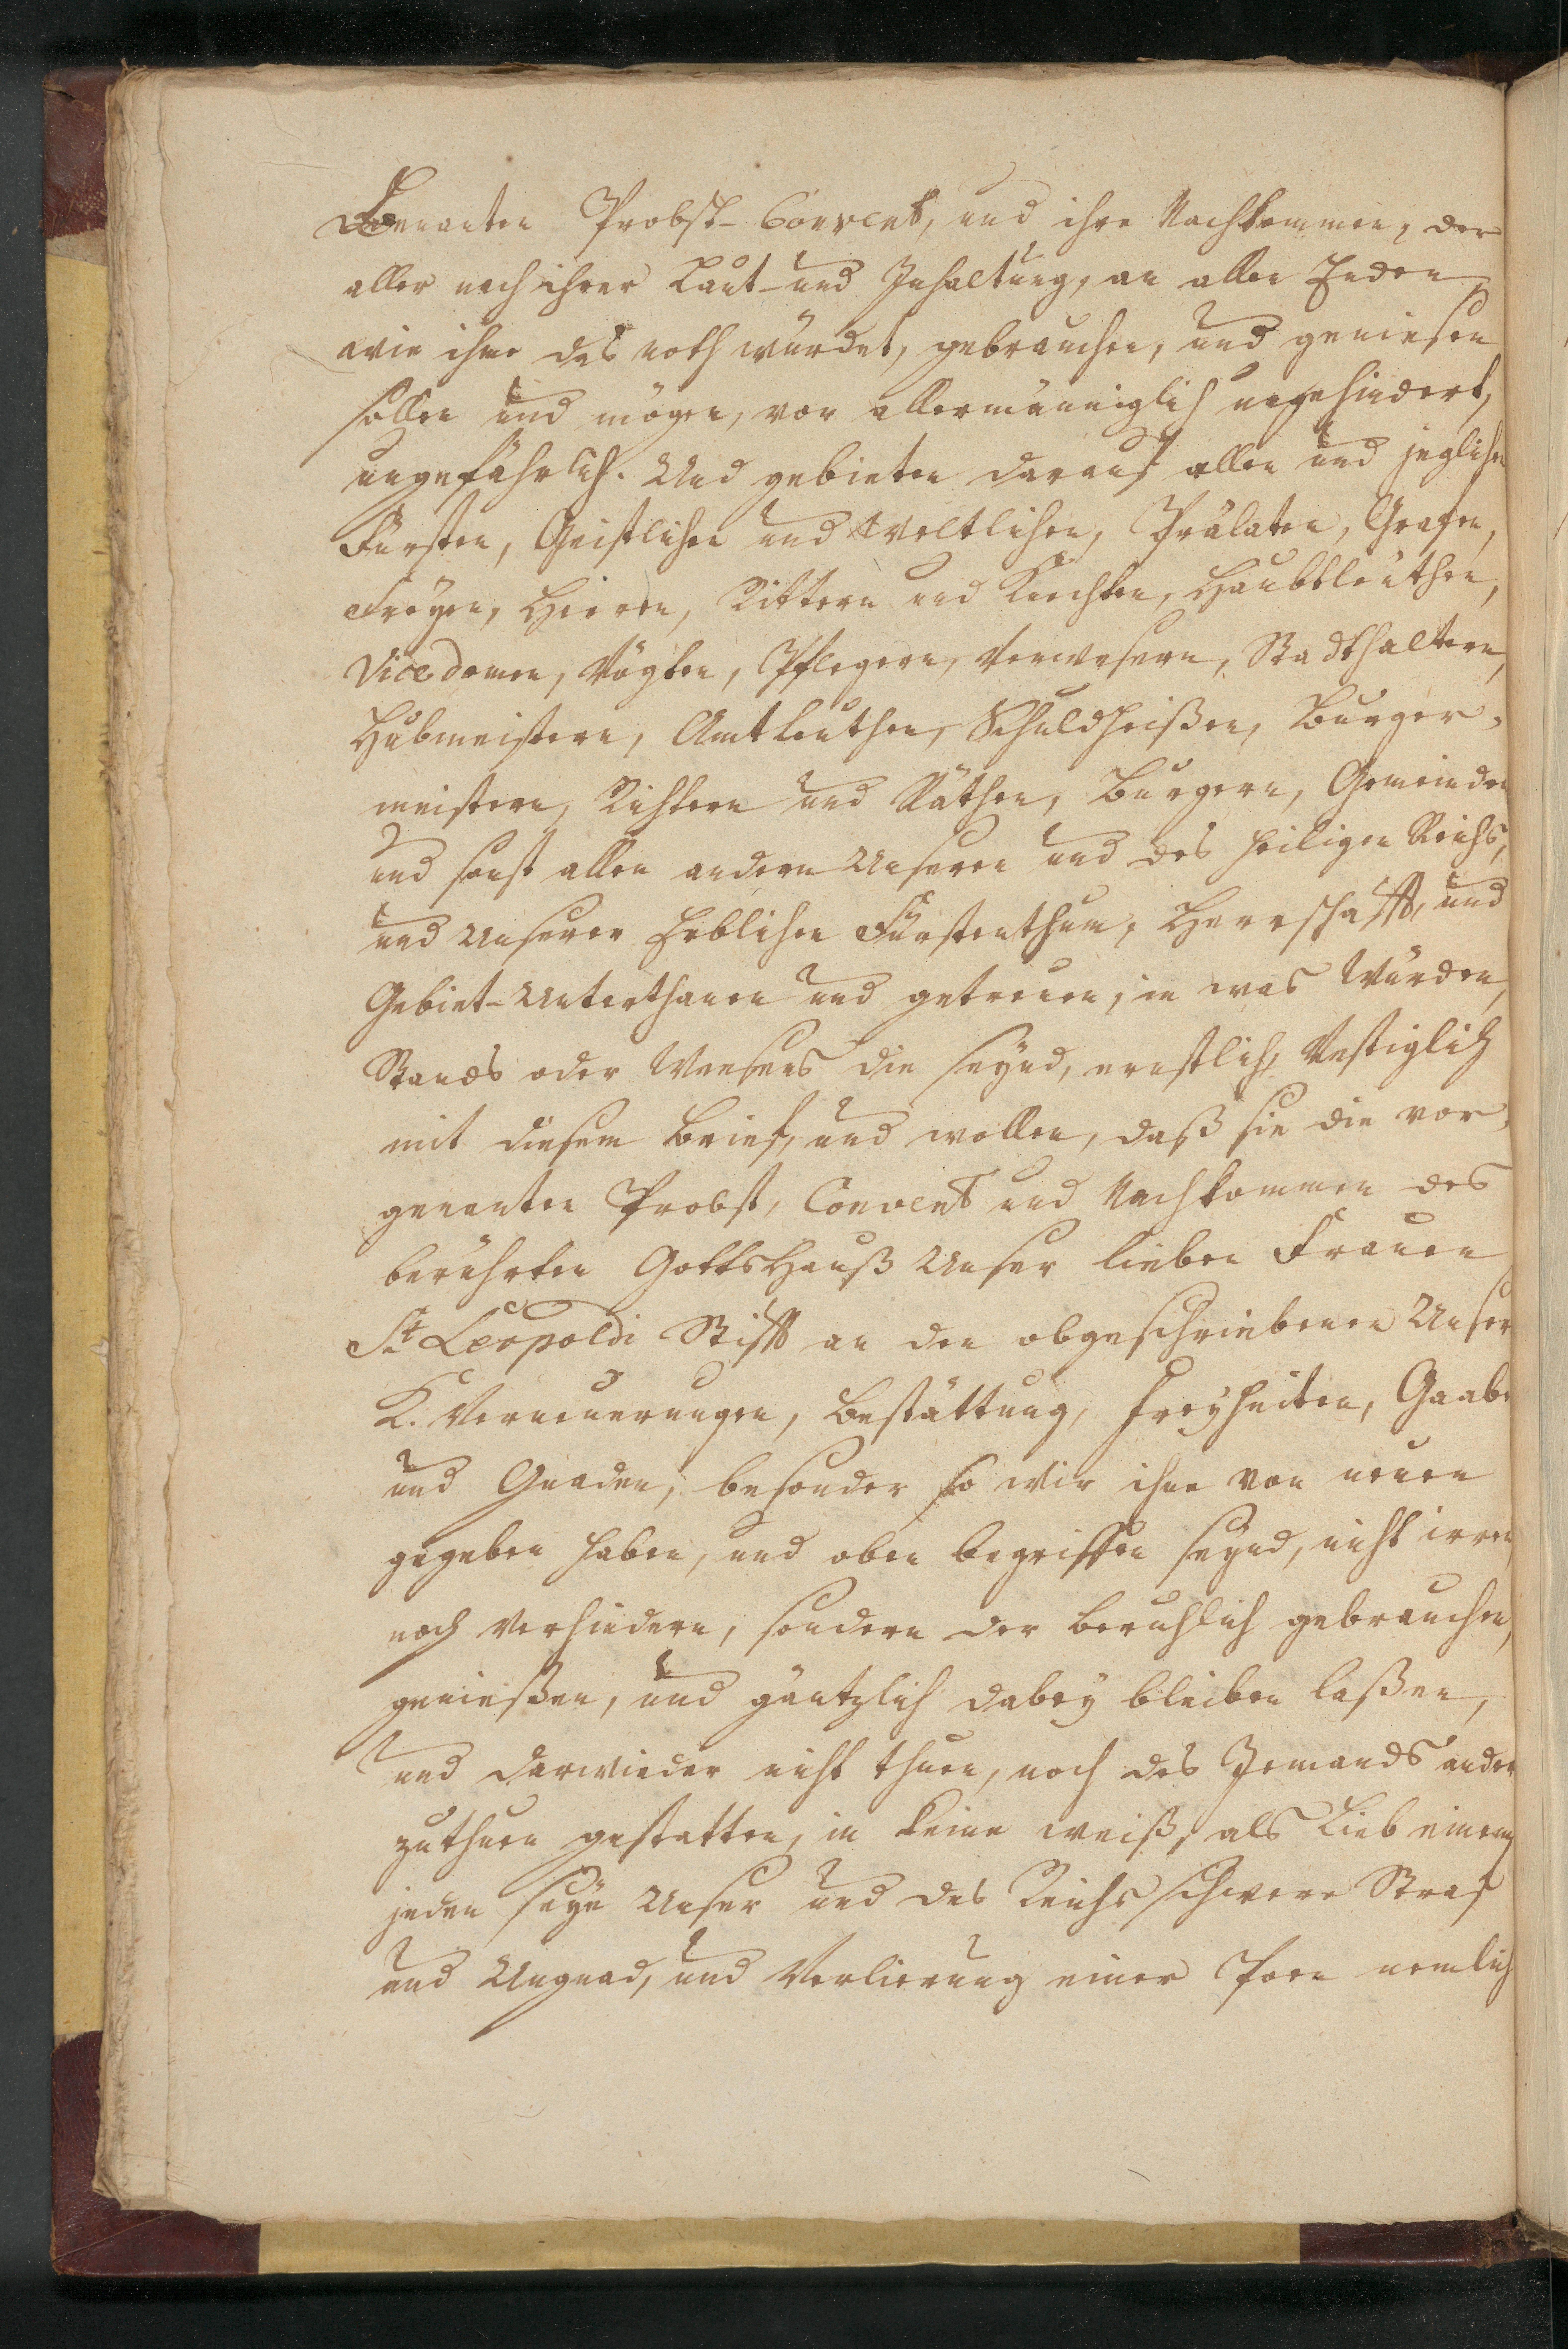 Benanten Probst-Convent, und ihre Nachkommen, der
aller nach ihrer Laut- und Inhaltung, an allen Enden
wie ihme das noth würdet, gebrauchen, und geniesen
sollen und mögen, von allermänniglich ungehindert,
ungefährlich. Und gebieten darauf allen und jeglichen
Fürsten, Geistlichen und Weltlichen, Prälaten, Grafen,
Freyen, Herren, Rittern und Knechten, Haubtleuthen,
Vicedomen, Vögten, Pflegern, Verwesern, Stadthaltern,
Hubmeistern, Amtleuthen, Schuldheißen, Burger-
meistern, Richtern und Räthen, Burgern, Gemeinden
und sonst allen andern Unseren und des heiligen Reichs,
und Unserer Erblichen Fürstenthum, Herrschafft, und
Gebiet-Unterthanen und getreuen, in was Würden,
Stands oder Weesens die seynd, ernstlich, Vestiglich
mit diesem Brief, und wollen, daß sie die vor-
genanten Probst, Convent und Nachkommen des
berührten GottsHauß Unser lieben Frauen
St Leopoldi Stifft an den obgeschriebenen Unser
K. Verneuerungen, Bestättung, Freyheiten, Gaaben
und Gnaden, besonder so wir ihne von neuen
gegeben haben, und oben begriffen seynd, nicht irren,
noch verhindern, sondern der beruhlich gebrauchen,
genießen, und gäntzlich dabey bleiben laßen,
und darwieder nicht thuen, noch des Jemands ander
zuthuen gestatten, in keine weiß, als Lieb einem
jeden seye Unser und des Reichs schwere Straf
und Ungnad, und Verlierung einer Poen nemlich